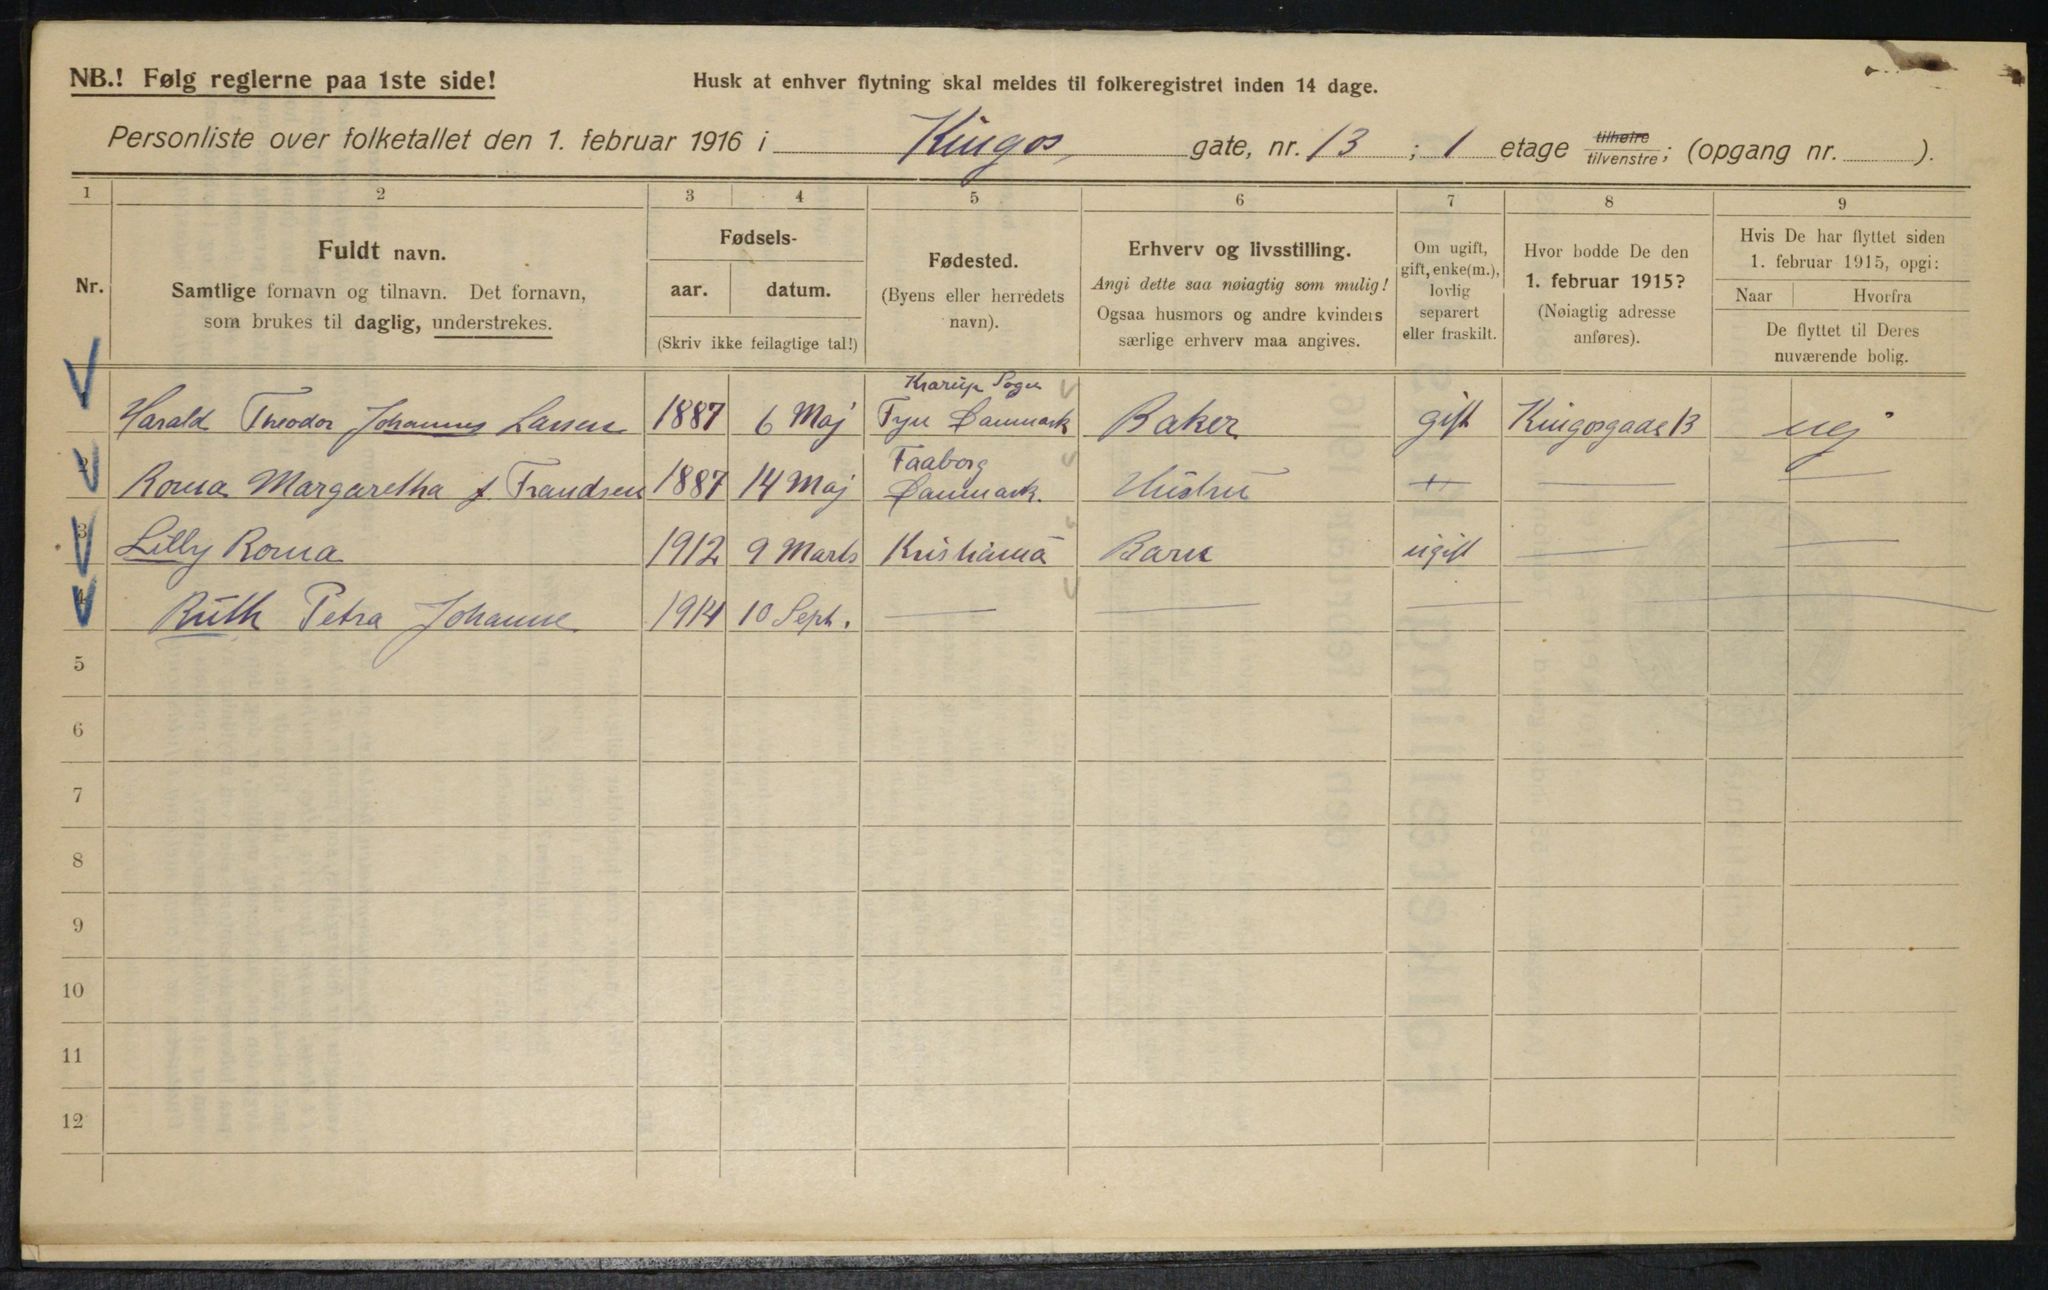 NB.! Følg reglerne paa 1ste side!
Husk at enhver flytning skal meldes til folkeregistret inden 14 dage.
Personliste over folketallet den 1. februar 1916 i Kingos gate, nr. 13 ; 1 etage tilhøire tilvenstre; (opgang nr. ).
1 2 3 4 5 6 7 8 9
Nr.
Fuldt navn.
Samtlige fornavn og tilnavn. Det fornavn,
som brukes til daglig, understrekes.
Fødsels-
aar. datum.
(Skriv ikke feilagtige tal!)
Fødested.
(Byens eller herredets
navn).
Erhverv og livsstilling.
Angi dette saa nøiagtig som mulig!
Ogsaa husmors og andre kvinders
særlige erhverv maa angives.
Om ugift,
gift, enke(m.),
lovlig
separert
eller fraskilt.
Hvor bodde De den
1. februar 1915?
(Nøiagtig adresse
anføres).
Hvis De har flyttet siden
1. februar 1915, opgi:
Naar Hvorfra
De flyttet til Deres
nuværende bolig.
Krarup Sogn
Harald Theodor Johannes Larsen 1887 6 Maj Fyn Danmark Baker gift Kingosgade 13 nej
Faaborg
2 Roma Margaretha f. Frandsen 1887 14 Maj Danmark. Hustru — — —
3 Lilly Roma 1912 9 Marts Kristiania Barn ugift — —
4 Ruth Petra Johanne 1914 10 Sept. — — —
5
6
7
8
9
10
11
12